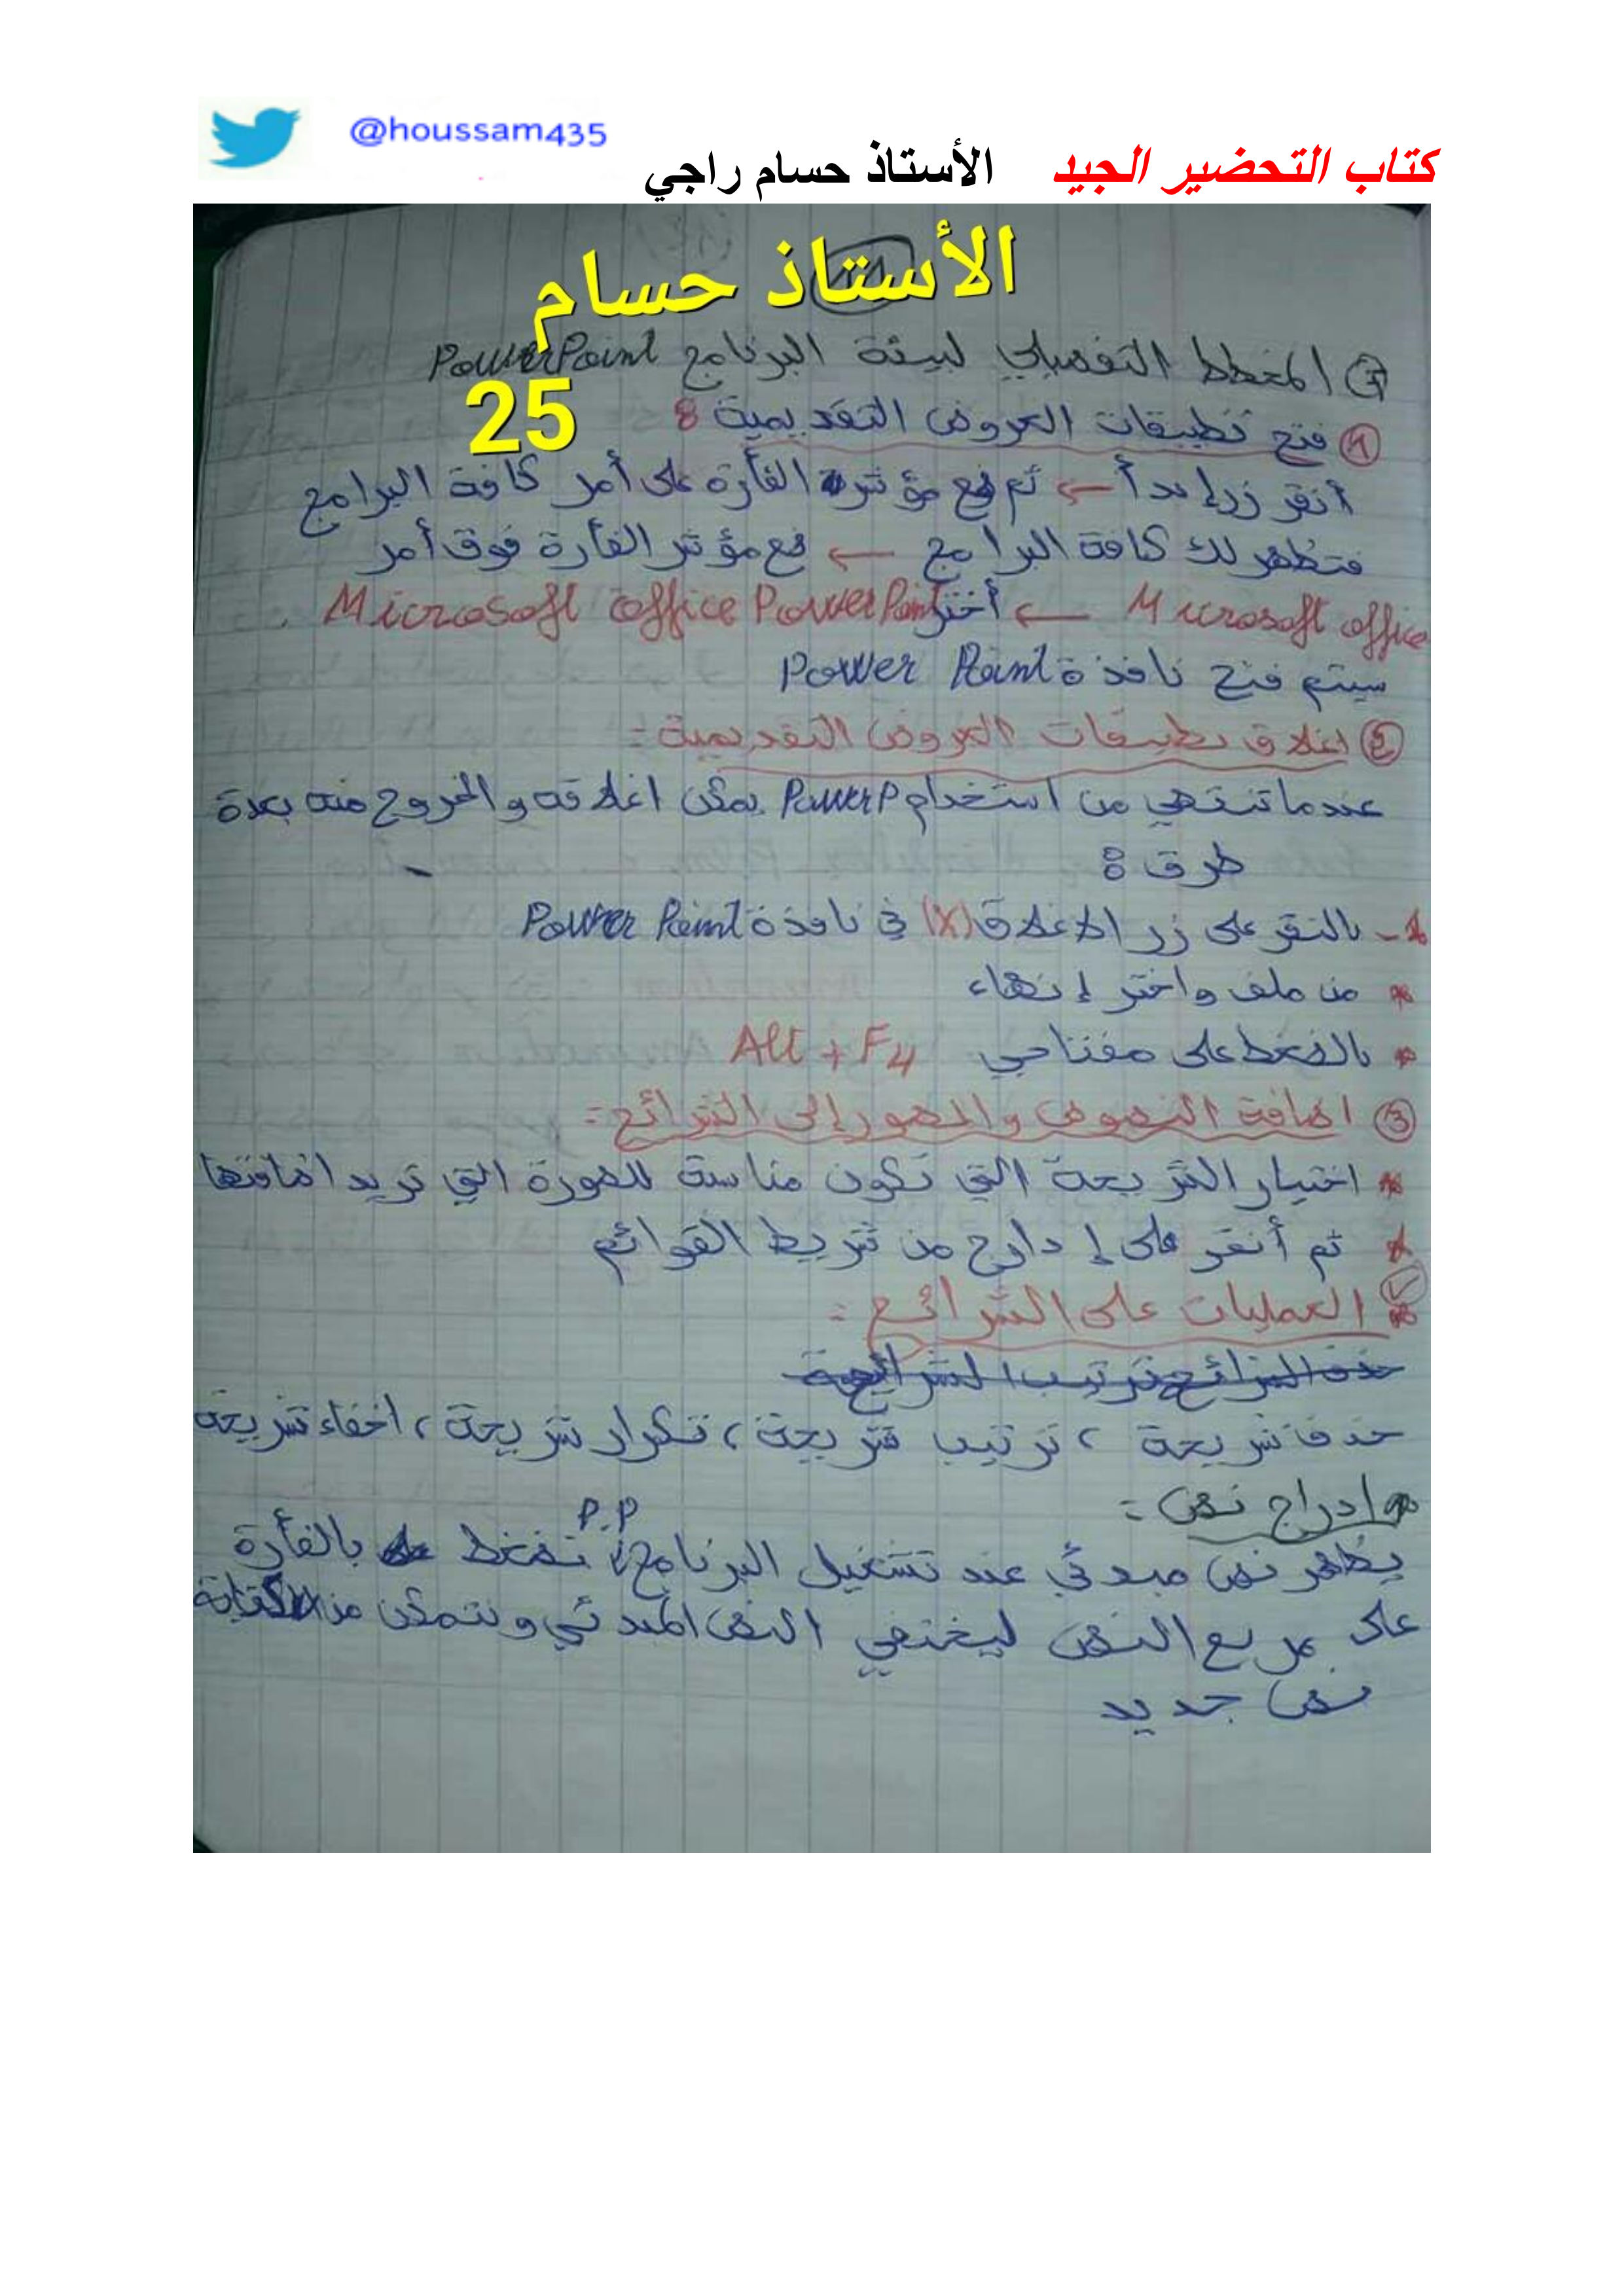 @houssam435
كتاب التحضير الجيد الأستاذ حسام راجي
الأستاذ حسام
25
المخطط التفصيلي لبيئة البرنامج PowerPoint
1 فتح تطبيقات العروض التقديمية :
أنقر زر إبدأ ← ثم ضع مؤشر الفأرة على أمر كافة البرامج
فتظهر لك كافة البرامج ← ضع مؤشر الفأرة فوق أمر
Microsoft office ← أختر Microsoft office PowerPoint .
سيتم فتح نافذة Power Point
2 اغلاق تطبيقات العروض التقديمية :
عندما تنتهي من استخدام PowerP يمكن اغلاقه والخروج منه بعدة
طرق :
- بالنقر على زر الاغلاق (X) في نافذة Power Point
* من ملف واختر إنهاء
* بالضغط على مفتاحي Alt + F4
3 اضافة النصوص والصور إلى الشرائح :
* اختيار الشريحة التي تكون مناسبة للصورة التي تريد اضافتها
* ثم أنقر على إدارج من شريط القوائم
* العمليات على الشرائح :
حذف شريحة ، ترتيب شريحة ، تكرار شريحة ، اخفاء شريحة
* ادراج نص :
يظهر نص مبدئي عند تشغيل البرنامج P.P نضغط بالفأرة
على مربع النص ليختفي النص المبدئي ونتمكن من كتابة
نص جديد